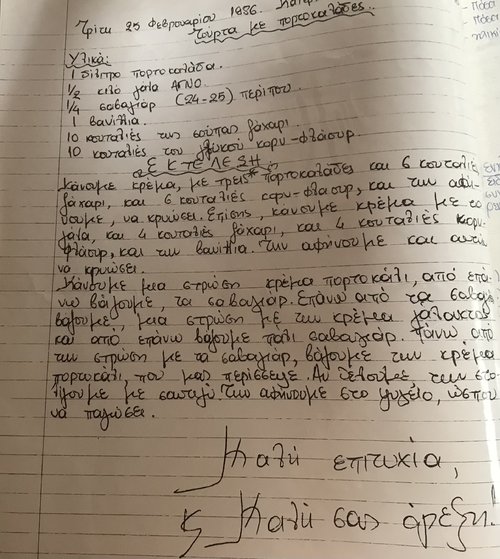 Τρίτη 25 Φεβρουαρίου 1986.
Τούρτα με πορτοκαλάδες.
Υλικά:
1 λίτρο πορτοκαλάδα.
1/2 κιλό γάλα ΑΓΝΟ.
1/4 σαβαγιάρ (24-25) περίπου.
1 βανίλια.
10 κουταλιές της σούπας ζάχαρι.
10 κουταλιές του γλυκού κορν-φλάουρ.
ΕΚΤΕΛΕΣΗ
Κάνουμε κρέμα, με τρεις πορτοκαλάδες και 6 κουταλιές
ζάχαρι, και 6 κουταλιές κορν-φλάουρ, και την αφή-
νουμε, να κρυώσει. Επίσης, κάνουμε κρέμα με το
γάλα, και 4 κουταλιές ζάχαρι, και 4 κουταλιές κορν-
φλάουρ, και την βανίλια. Την αφήνουμε και αυτή
να κρυώσει.
Κάνουμε μια στρώση κρέμα πορτοκάλι, από επά-
νω βάζουμε, τα σαβαγιάρ. Επάνω από τα σαβαγ.
βάζουμε, μια στρώση με την κρέμα γάλακτος
και από επάνω βάζουμε πάλι σαβαγιάρ. Πάνω από
την στρώση με τα σαβαγιάρ, βάζουμε την κρέμα
πορτοκάλι, που μας περίσσεψε. Αν θέλουμε την στο-
λίζουμε με σαντιγύ. Την αφήνουμε στο ψυγείο, ώσπου
να παγώσει.
Καλή επιτυχία,
ς Καλή σας όρεξη!